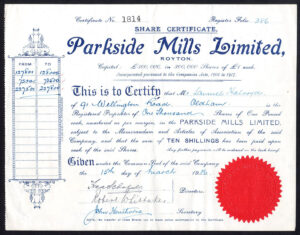 Certificate No 1814
Register Folio 286
SHARE CERTIFICATE.
Parkside Mills Limited,
ROYTON.
Capital £100,000, in 100,000 Shares of £1 each.
Incorporated pursuant to the Companies Acts, 1908 to 1917.
FROM TO
This is to Certify that Mr. Samuel
of 91 Wellington Road, Oldham is
the Registered Proprietor of One Thousand Shares of One Pound
each, numbered as per margin, in the PARKSIDE MILLS LIMITED,
subject to the Memorandum and Articles of Association of the said
Company, and that the sum of TEN SHILLINGS has been paid
upon each of the said Shares.
Given under the Common Seal of the said Company
the 15th day of March 1920
Directors.
Robert Whittaker
Secretary